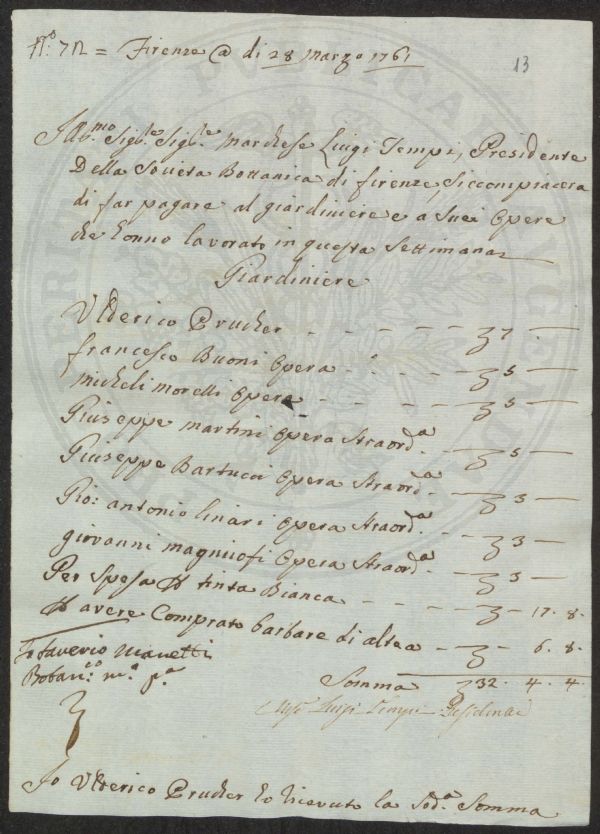 N.º 72 = Firenze @ di 28 Marzo 1761
13
Ill.mo Sig.re Sig.re Marchese Luigi Tempi, Presidente
Della Società Bottanica di firenze, Siccompiacera
di far pagare al giardiniere e a Suoi Opere
che honno lavorato in questa Settimana
Giardiniere
Ulderico Prucher - - - - - - 7 . —
francesco Buoni Opera - - - - 5 —
micheli morelli Opera - - - - 5 —
Giuseppe martini Opera Straord.a - 5 —
Giuseppe Bartucci Opera Straord.a - 3 —
Gio: antonio linari Opera Straord.a - 3 —
giovanni magniuofi Opera Straord.a - 3 —
Per Spesa tinta Bianca - - - - - 17 . 8 .
avere Comprato barbare di altea - - 6 . 8 .
Saverio Manetti
Botan.co m.o p.a
Somma 32 . 4 . 4 .
Luigi Tempi Presidente
Io Ulderico Prucher ho ricevuto la Sod.a Somma